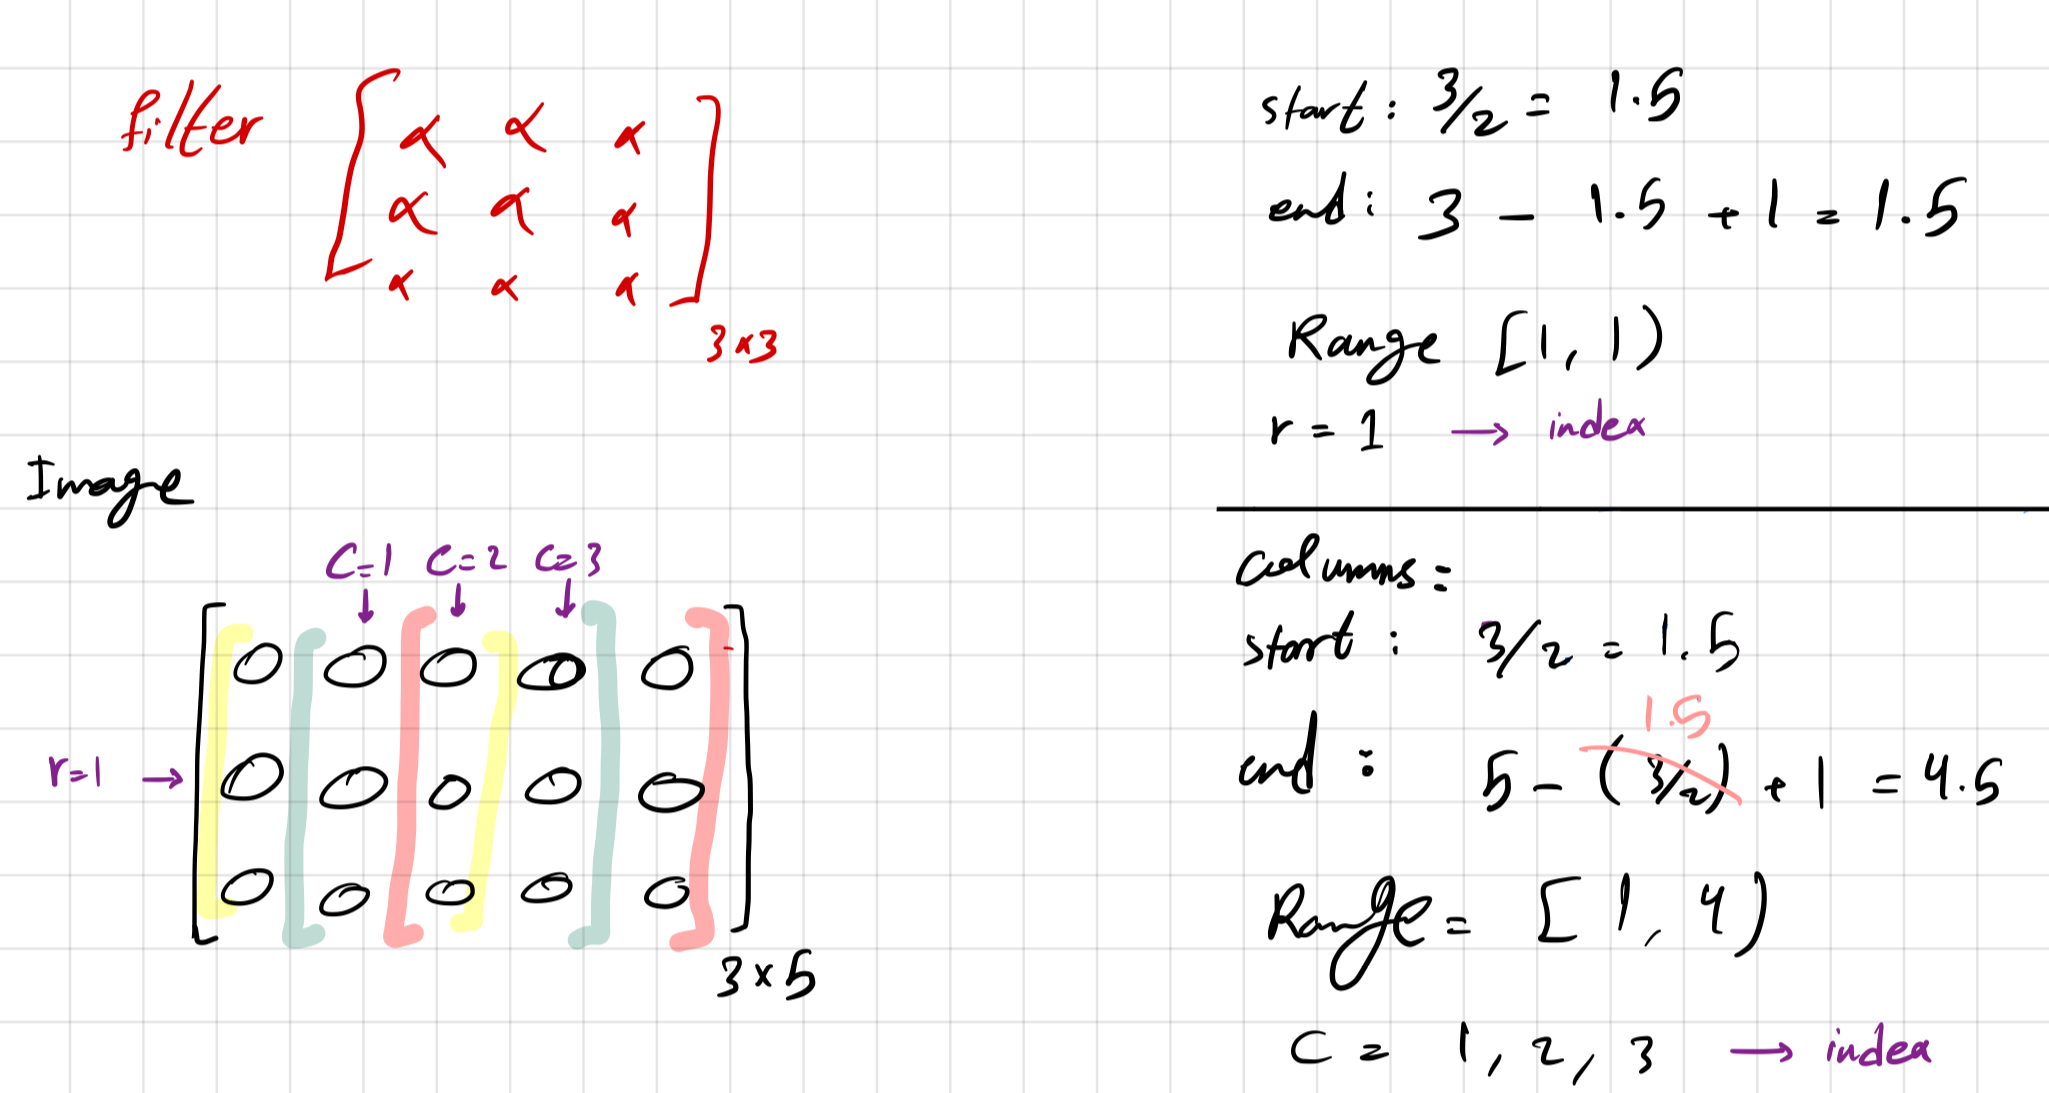 filter
α α α
α α α
α α α
3×3
Image
C=1 C=2 C=3
r=1 →
O O O O O
O O O O O
O O O O O
3×5
start: 3/2 = 1.5
end: 3 - 1.5 + 1 = 1.5
Range [1, 1)
r = 1 → index
columns:
start: 3/2 = 1.5
1.5
end: 5 - (3/2) + 1 = 4.5
Range = [1, 4)
C = 1, 2, 3 → index